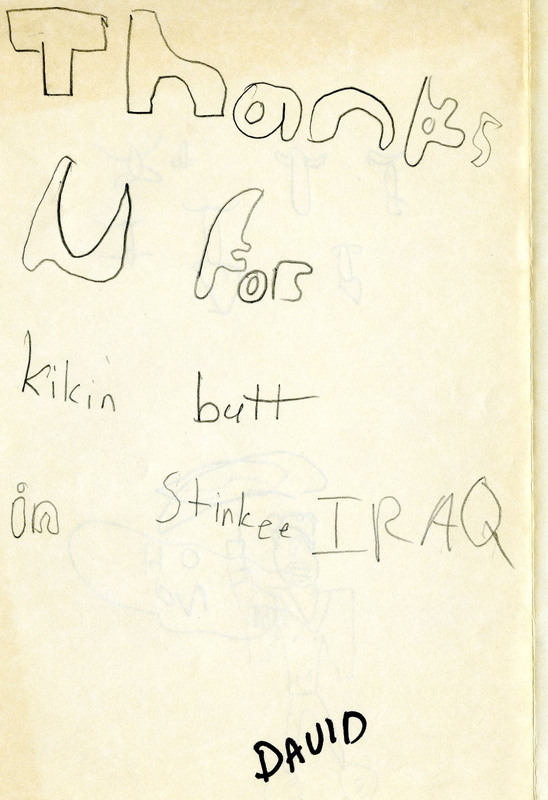 Thanks
U for
kikin butt
in Stinkee IRAQ
DAVID